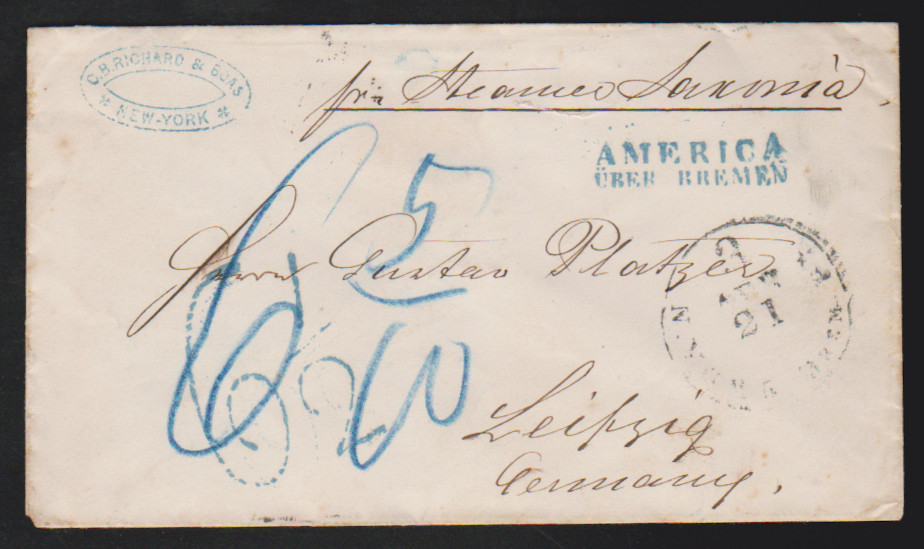 C.B. RICHARD & BOAS
NEW-YORK
pr Steamer Saxonia.
AMERICA
ÜBER BREMEN
5
Herrn Gustav Platzer
6
10
21
Leipzig
Germany.